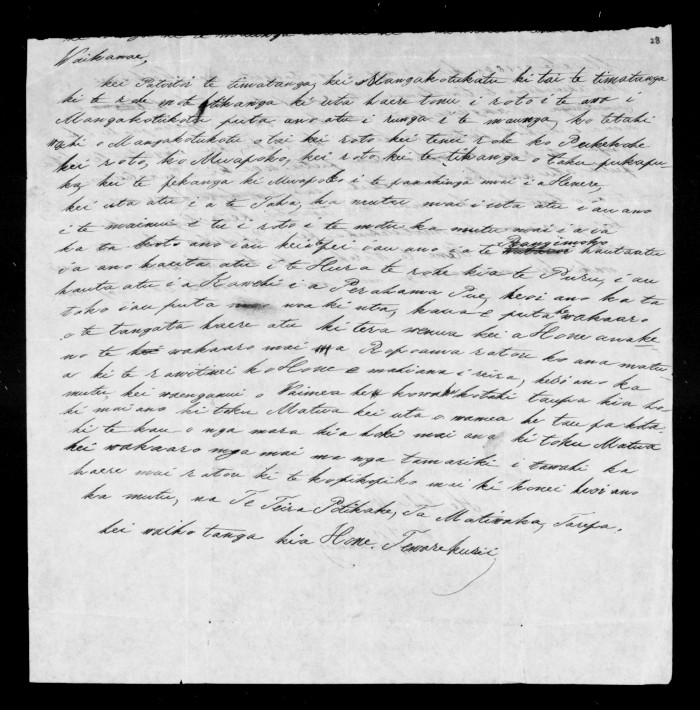 28
Waikanae,
kei te timatanga, kei Mangakotukutu ki tai te timatanga
ki te rode te tikanga ki uta haere tonu i roto i te awa i
Mangakotukutu puta ano atu i runga i te maunga, ko tetahi
wahi o Mangakotukutu o tai kei roto kei tenei rode ko Pukehode
kei roto, ko Mwapoko, kei roto, kei te tikanga o taku pukapu-
ka, kei te pekanga ki Mwapoko i te panahinga mai i a Henere,
kei uta atu i a te Taha, ka mutu mai i uta atu i au ano
i te mainui e tu i roto i te motu ka mutu mai i a ia
ka ta ano i au i au ano i a te Rangimoho hautautu
i a ano hauta atu i te Hura te rode kia te Puru, i au
hauta atu i a Kawehi i a Perahama Pue, heoi ano ka ta
toko i au puta noa ki uta, kaua e puta te wakaaro
o te tangata haere atu ki tera wenua kei a Hone anake
no te wakaaro mai a Ropoama ratou ko ana matu-
a ki te rawitiwi ko Hone e i reira, heoi ano ka
mutu kei waenganui o Waimea kotahi taupa kia ho
ki mai ano ki toku Matua kei uta o wamea he taupa kota
hi te kau o nga mara kia hoki mai ano ki toku Matua
hei wakaaro mga mai mo nga tamariki i tawahi ka
haere mai ratou ki te kopikopiko mai ki konei heoi ano
ka mutu, na Te Teira Potikake, Ta Matiwaka, Tarepa.
hei waiho tanga kia Hone. Tewarekurii